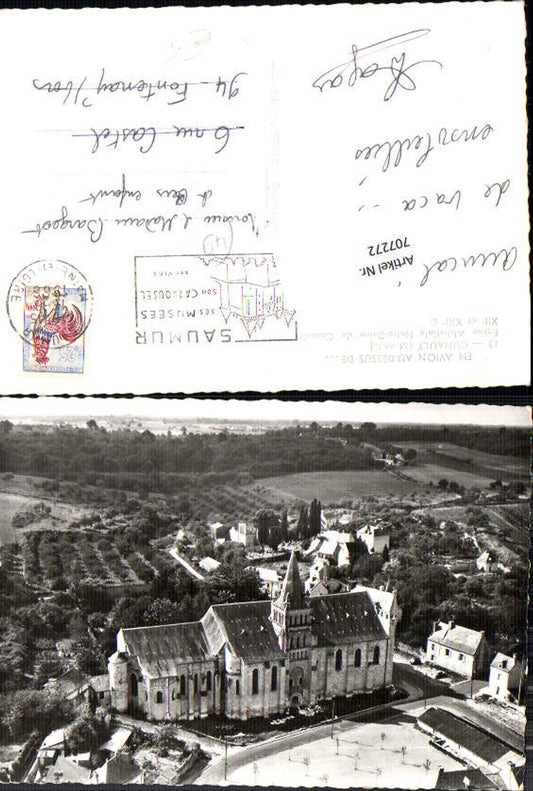 Amical
de vaca...
ensoleillées
Monsieur et Madame Bargeot
et leurs enfants
6 rue Castel
94 Fontenay s/bois
Artikel Nr.
707272
SAUMUR
ses MUSÉES
son CARROUSEL
ses VINS
"EN AVION AU-DESSUS DE..."
13 - CUNAULT (M.-et-L.)
Eglise Abbatiale Notre-Dame de Cunault
XIIe et XIIIe S.